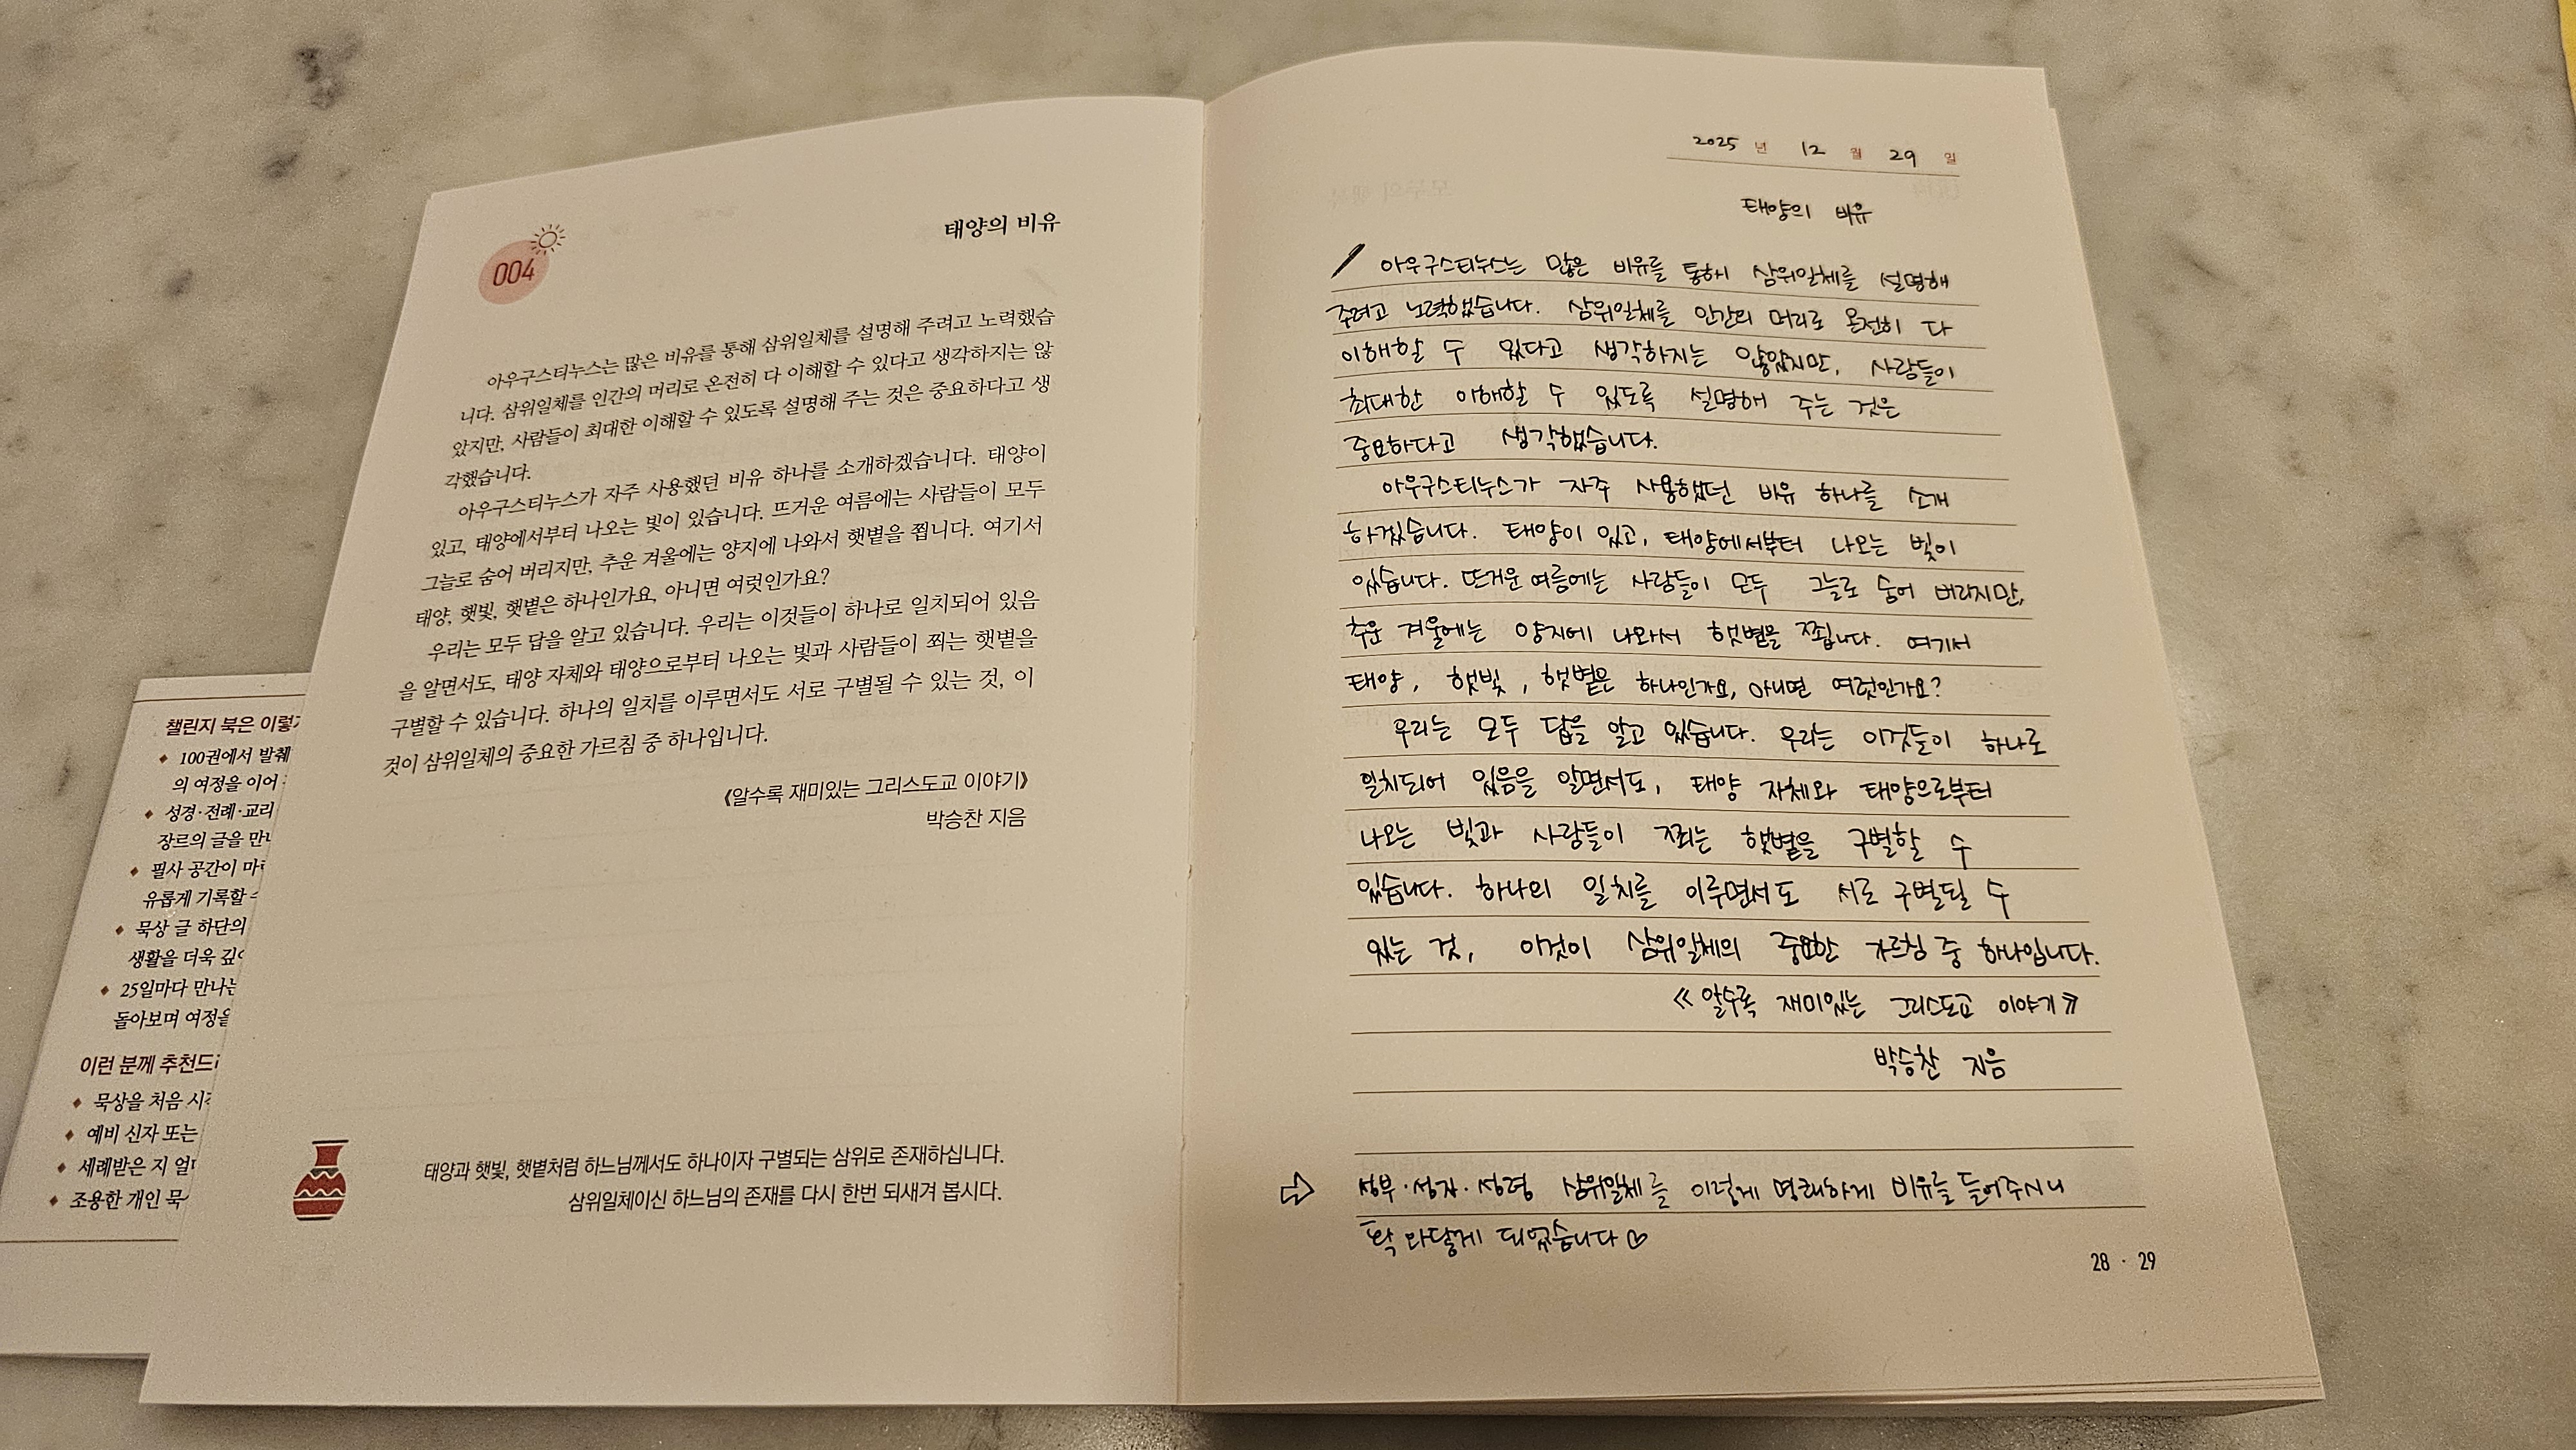 004
태양의 비유
아우구스티누스는 많은 비유를 통해 삼위일체를 설명해 주려고 노력했습
니다. 삼위일체를 인간의 머리로 온전히 다 이해할 수 있다고 생각하지는 않
았지만, 사람들이 최대한 이해할 수 있도록 설명해 주는 것은 중요하다고 생
각했습니다.
아우구스티누스가 자주 사용했던 비유 하나를 소개하겠습니다. 태양이
있고, 태양에서부터 나오는 빛이 있습니다. 뜨거운 여름에는 사람들이 모두
그늘로 숨어 버리지만, 추운 겨울에는 양지에 나와서 햇볕을 쬡니다. 여기서
태양, 햇빛, 햇볕은 하나인가요, 아니면 여럿인가요?
우리는 모두 답을 알고 있습니다. 우리는 이것들이 하나로 일치되어 있음
을 알면서도, 태양 자체와 태양으로부터 나오는 빛과 사람들이 쬐는 햇볕을
구별할 수 있습니다. 하나의 일치를 이루면서도 서로 구별될 수 있는 것, 이
것이 삼위일체의 중요한 가르침 중 하나입니다.
《알수록 재미있는 그리스도교 이야기》
박승찬 지음
태양과 햇빛, 햇볕처럼 하느님께서도 하나이자 구별되는 삼위로 존재하십니다.
삼위일체이신 하느님의 존재를 다시 한번 되새겨 봅시다.
챌린지 북은 이렇
100권에서 발췌
의 여정을 이어
성경·전례·교리
장르의 글을 만
필사 공간이 마
유롭게 기록할
묵상 글 하단의
생활을 더욱 깊
25일마다 만나는
돌아보며 여정을
이런 분께 추천드
묵상을 처음 시
예비 신자 또는
세례받은 지 얼
조용한 개인 묵
2025 년 12 월 29 일
태양의 비유
아우구스티누스는 많은 비유를 통해 삼위일체를 설명해
주려고 노력했습니다. 삼위일체를 인간의 머리로 온전히 다
이해할 수 있다고 생각하지는 않았지만, 사람들이
최대한 이해할 수 있도록 설명해 주는 것은
중요하다고 생각했습니다.
아우구스티누스가 자주 사용했던 비유 하나를 소개
하겠습니다. 태양이 있고, 태양에서부터 나오는 빛이
있습니다. 뜨거운 여름에는 사람들이 모두 그늘로 숨어 버리지만,
추운 겨울에는 양지에 나와서 햇볕을 쬡니다. 여기서
태양, 햇빛, 햇볕은 하나인가요, 아니면 여럿인가요?
우리는 모두 답을 알고 있습니다. 우리는 이것들이 하나로
일치되어 있음을 알면서도, 태양 자체와 태양으로부터
나오는 빛과 사람들이 쬐는 햇볕을 구별할 수
있습니다. 하나의 일치를 이루면서도 서로 구별될 수
있는 것, 이것이 삼위일체의 중요한 가르침 중 하나입니다.
《알수록 재미있는 그리스도교 이야기》
박승찬 지음
⇨ 성부·성자·성령 삼위일체를 이렇게 명쾌하게 비유를 들어주시니
팍 와닿게 되었습니다♡
28 · 29